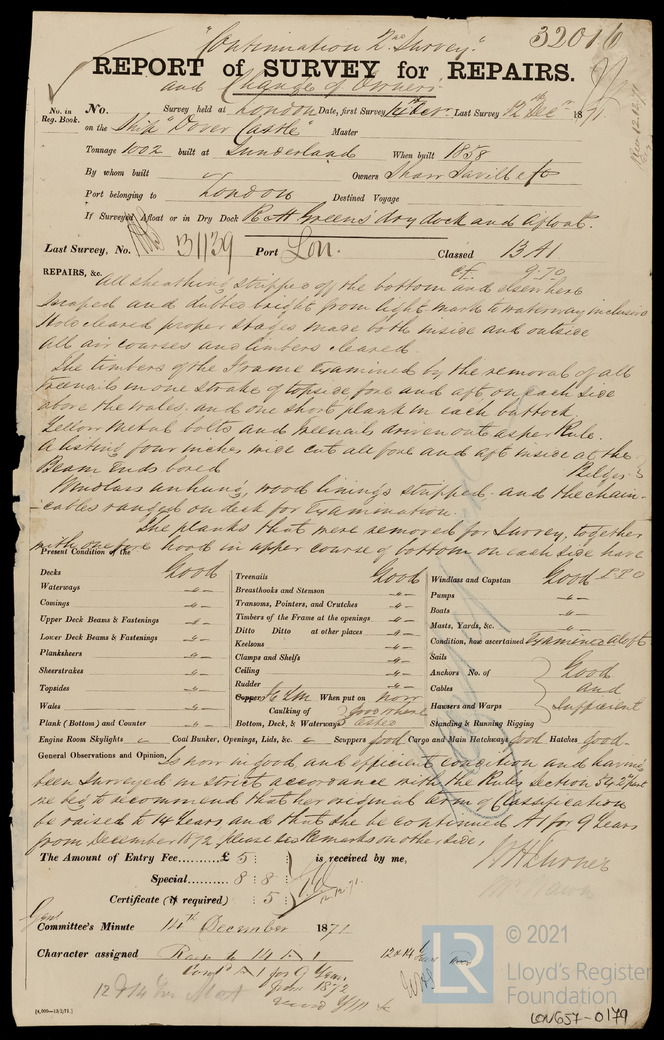 "Continuation 2nd Survey."
32016
REPORT of SURVEY for REPAIRS.
and Change of Owners
No. in Reg. Book.
No. Survey held at London Date, first Survey Last Survey 12th Decr 1871
on the Ship "Dover Castle" Master
Tonnage 1002 built at Sunderland When built 1858
By whom built Owners Shaw Savill & Co
Port belonging to London Destined Voyage
If Surveyed Afloat or in Dry Dock R & H Green's dry dock and afloat.
Last Survey, No. 31139 Port Lon. Classed 13 A1
REPAIRS, &c.
All sheathing stripped of the bottom and elsewhere
Scraped and dubbed bright from light mark to waterway inclusive
Hold cleared proper stages made both inside and outside
All air courses and limbers cleared.
The timbers of the Frame Examined by the removal of all
treenails in one strake of topside fore and aft on each side
above the wales. and one short plank in each buttock.
Yellow metal bolts and treenails driven out as per Rule.
A listing four inches wide cut all fore and aft inside at the
Beam Ends bored Bilges
Windlass unhung, wood linings stripped. and the chain-
-cables ranged on deck for Examination.
The planks that were removed for Survey, together
with one fore hood in upper course of bottom on each side have
P.T.O
Present Condition of the
Decks Good
Waterways -"-
Comings -"-
Upper Deck Beams & Fastenings -"-
Lower Deck Beams & Fastenings -"-
Planksheers -"-
Sheerstrakes -"-
Topsides -"-
Wales -"-
Plank (Bottom) and Counter -"-
Treenails Good
Breasthooks and Stemson -"-
Transoms, Pointers, and Crutches -"-
Timbers of the Frame at the openings -"-
Ditto Ditto at other places -"-
Keelsons -"-
Clamps and Shelfs -"-
Ceiling -"-
Rudder -"-
Copper When put on now
Caulking of
Bottom, Deck, & Waterways
Windlass and Capstan Good
Pumps -"-
Boats -"-
Masts, Yards, &c. -"-
Condition, how ascertained Examined aloft
Sails
Anchors No. of Good
Cables and
Hausers and Warps Sufficient
Standing & Running Rigging
Engine Room Skylights Coal Bunker, Openings, Lids, &c. Scuppers good Cargo and Main Hatchways good Hatches good
General Observations and Opinion, Is now in good and efficient condition and having
been Surveyed in strict accordance with the Rules Section 54 2nd part
we beg to recommend that her original term of Classification
be raised to 14 Years and that she be continued A1 for 9 Years
from December 1872, please see Remarks on other side,
The Amount of Entry Fee......... £ 5 : is received by me,
Special......... 8 : 8 :
Certificate (if required) : 5 :
W H Turner
Committee's Minute 14th December 1871
Character assigned
Contd A1 for 9 Years
from 1872
[4,000—13/2/71.]
LR © 2021
Lloyd's Register
Foundation
LON657-0179